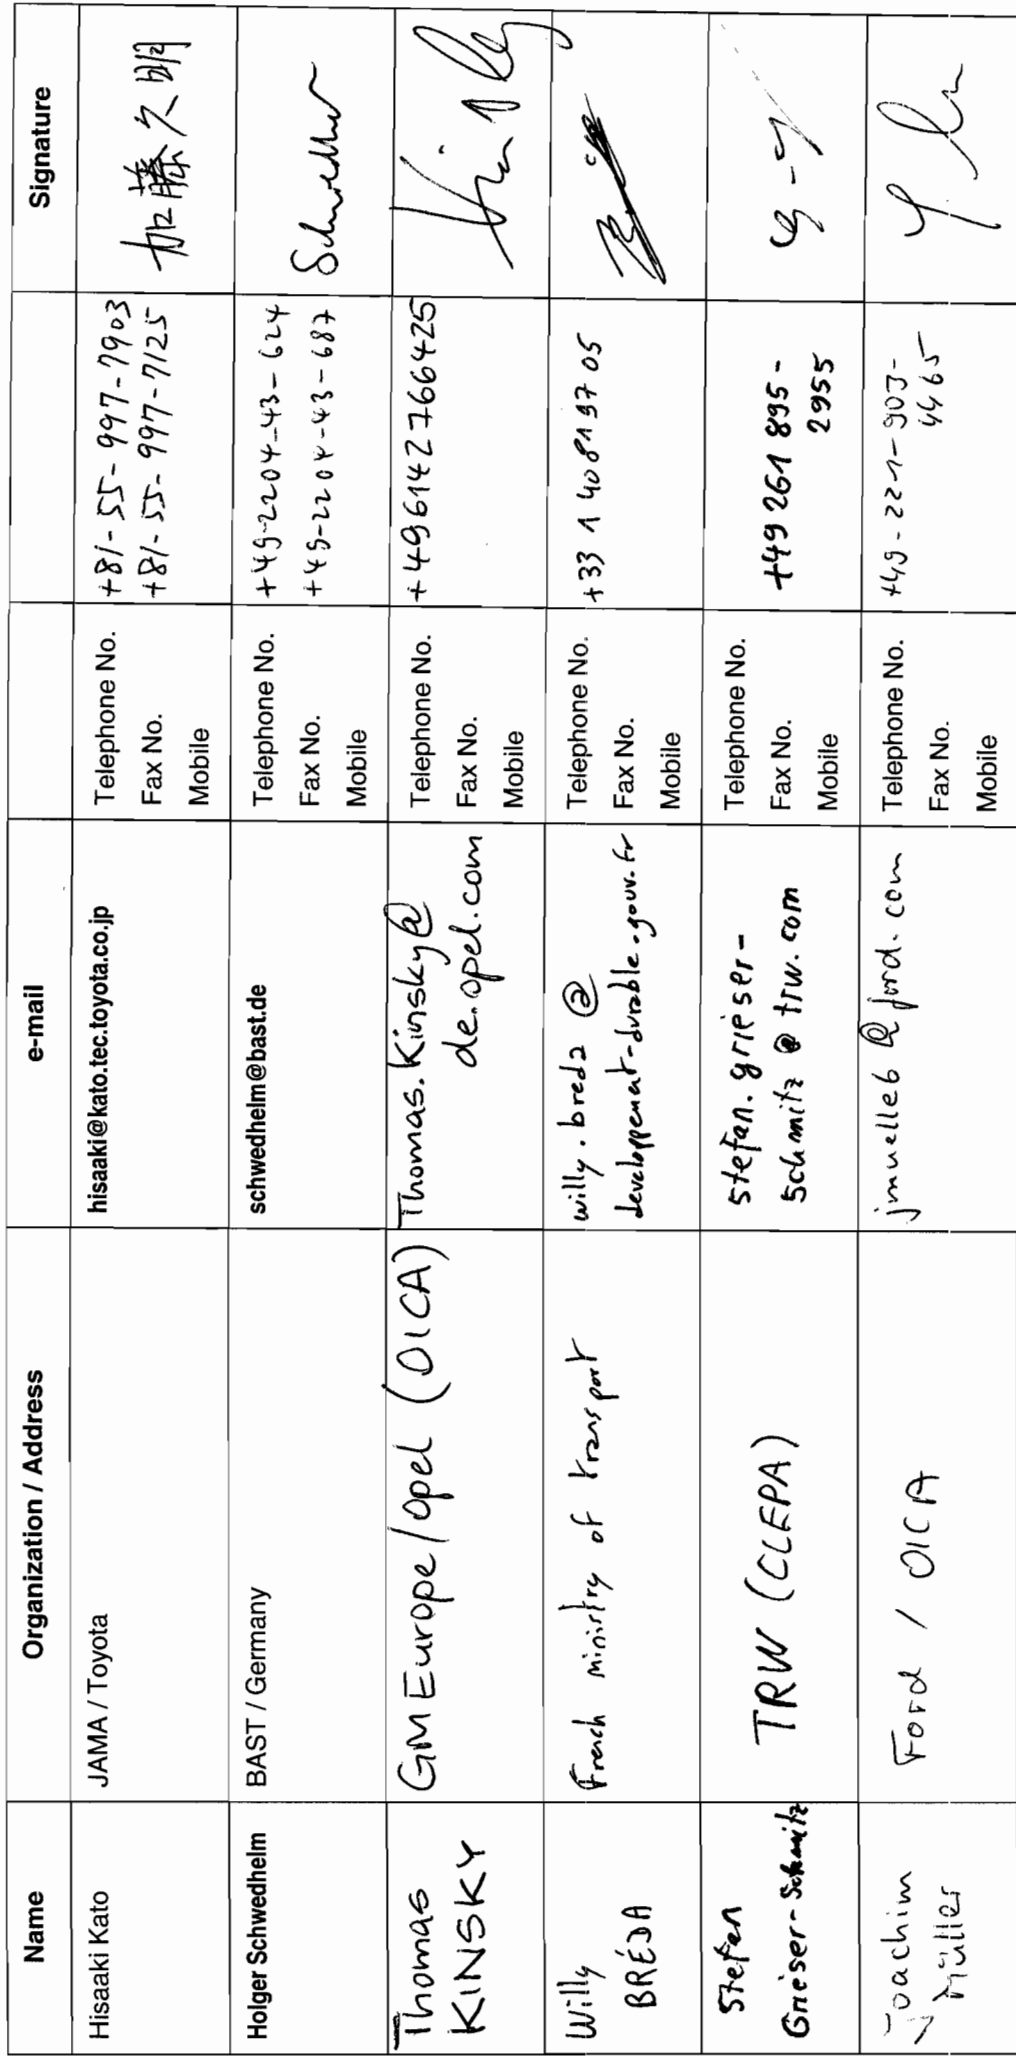 Name
Organization / Address
e-mail
Signature
Hisaaki Kato
JAMA / Toyota
hisaaki@kato.tec.toyota.co.jp
Telephone No.
Fax No.
Mobile
+81-55-997-7903
+81-55-997-7125
加藤久明
Holger Schwedhelm
BAST / Germany
schwedhelm@bast.de
Telephone No.
Fax No.
Mobile
+49-2204-43-624
+49-2204-43-687
Thomas
KINSKY
GM Europe/Opel (OICA)
Thomas.Kinsky@
de.opel.com
Telephone No.
Fax No.
Mobile
+496142766425
Willy
BRÉDA
French ministry of transport
willy.breda @
developpement-durable.gouv.fr
Telephone No.
Fax No.
Mobile
+33 1 40819705
Stefan
Grieser-Schmitz
TRW (CLEPA)
stefan.grieser-
schmitz @ trw.com
Telephone No.
Fax No.
Mobile
+49 261 895-
2955
Joachim
Müller
Ford / OICA
jmuelle6 @ford.com
Telephone No.
Fax No.
Mobile
+49-221-903-
4465